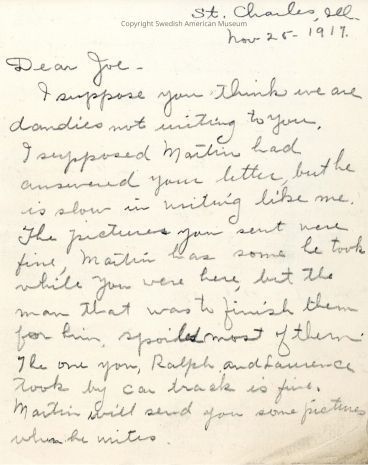 St. Charles, Ill.
Copyright Swedish American Museum
Nov 25 - 1917.
Dear Joe -
I suppose you think we are
dandies not writing to you,
I supposed Martin had
answered your letter, but he
is slow in writing like me.
The pictures you sent were
fine, Martin has some he took
while you were here, but the
man that was to finish them
for him, spoiled most of them.
The one you, Ralph and Laurence
took by car track is fine.
Martin will send you some pictures
when he writes.